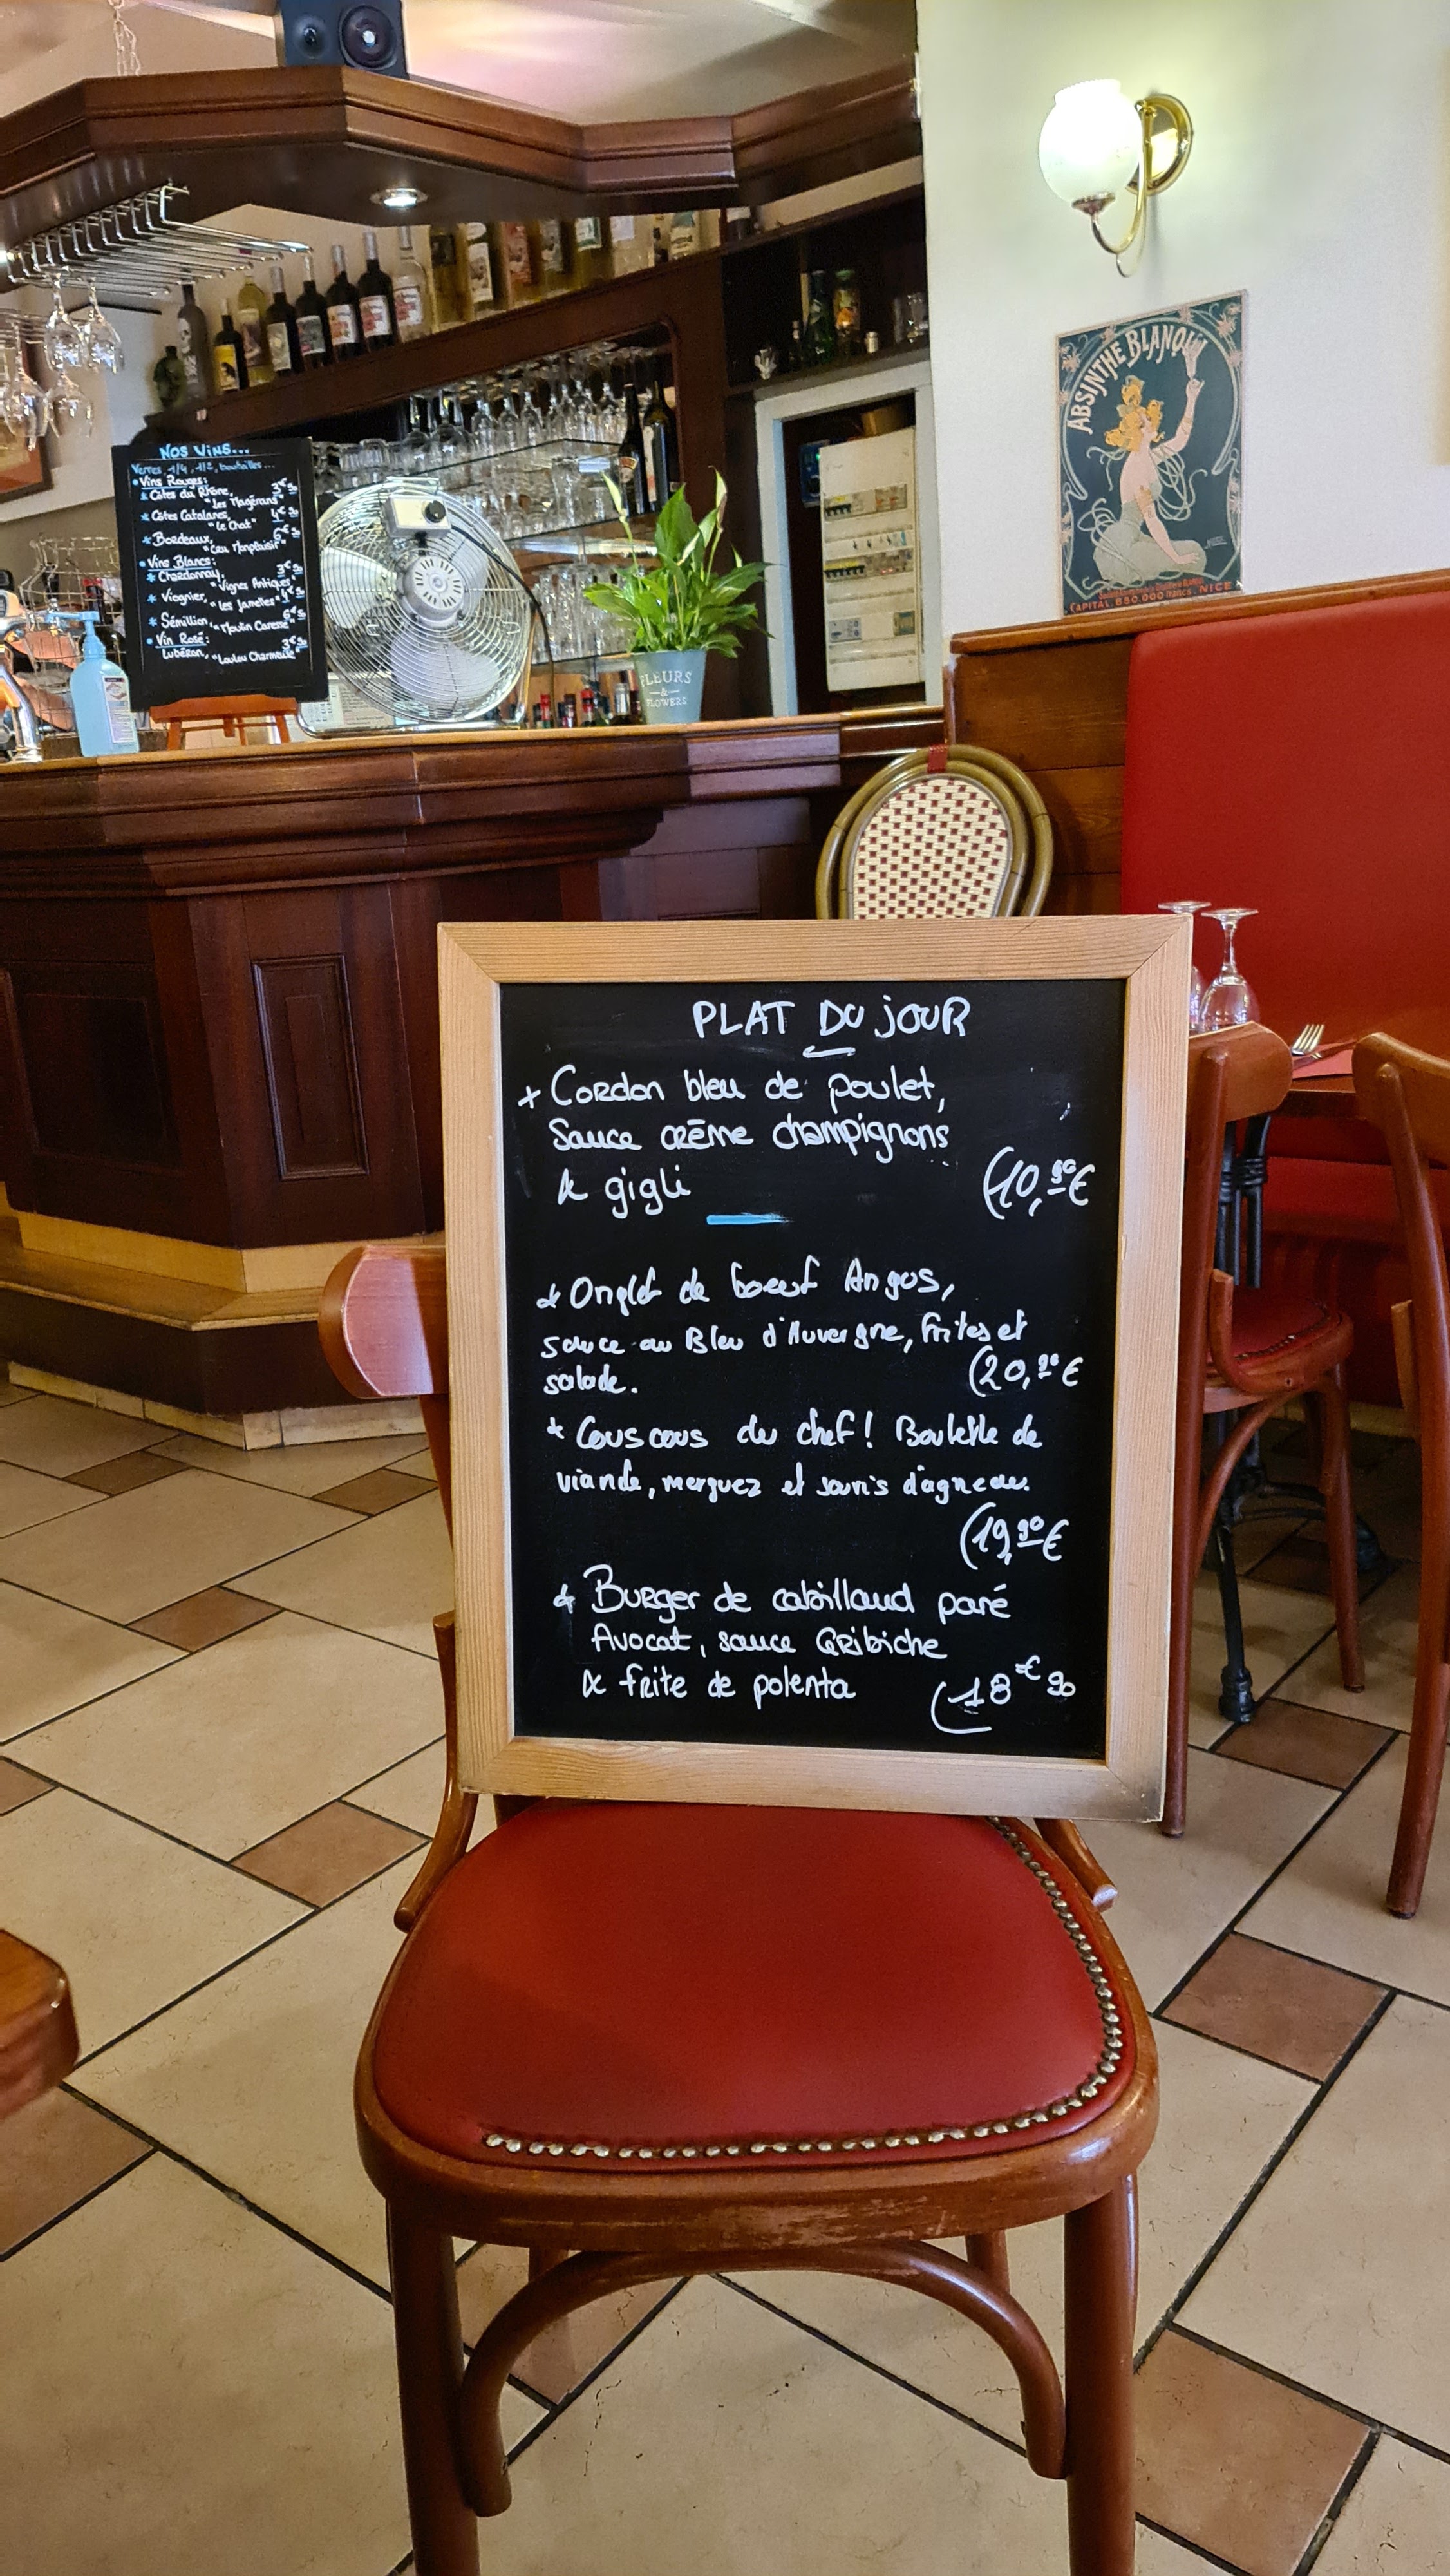 NOS VINS...
Verres, 1/4, 1/2, bouteilles...
• Vins Rouges:
* Côtes du Rhône,
"Les Magérans"
* Côtes Catalanes,
"Le Chat"
* Bordeaux,
• Vins Blancs:
* Chardonnay,
"Vignes Antiques"
* Viognier, "Les Jamelles"
* Sémillion,
"Moulin Caresse"
• Vin Rosé:
Lubéron, "Loulou Charmeuse"
FLEURS
&
FLOWERS
ABSINTHE BLANQUI
CAPITAL 650.000 francs. NICE
PLAT DU JOUR
+ Cordon bleu de poulet,
Sauce crème champignons
& gigli (10,90€
* Onglet de boeuf Angus,
sauce au Bleu d'Auvergne, frites et
salade. (20,90€
* Couscous du chef! Boulette de
viande, merguez et souris d'agneau.
(19,90€
* Burger de cabillaud pané
Avocat, sauce Gribiche
& frite de polenta (18€90